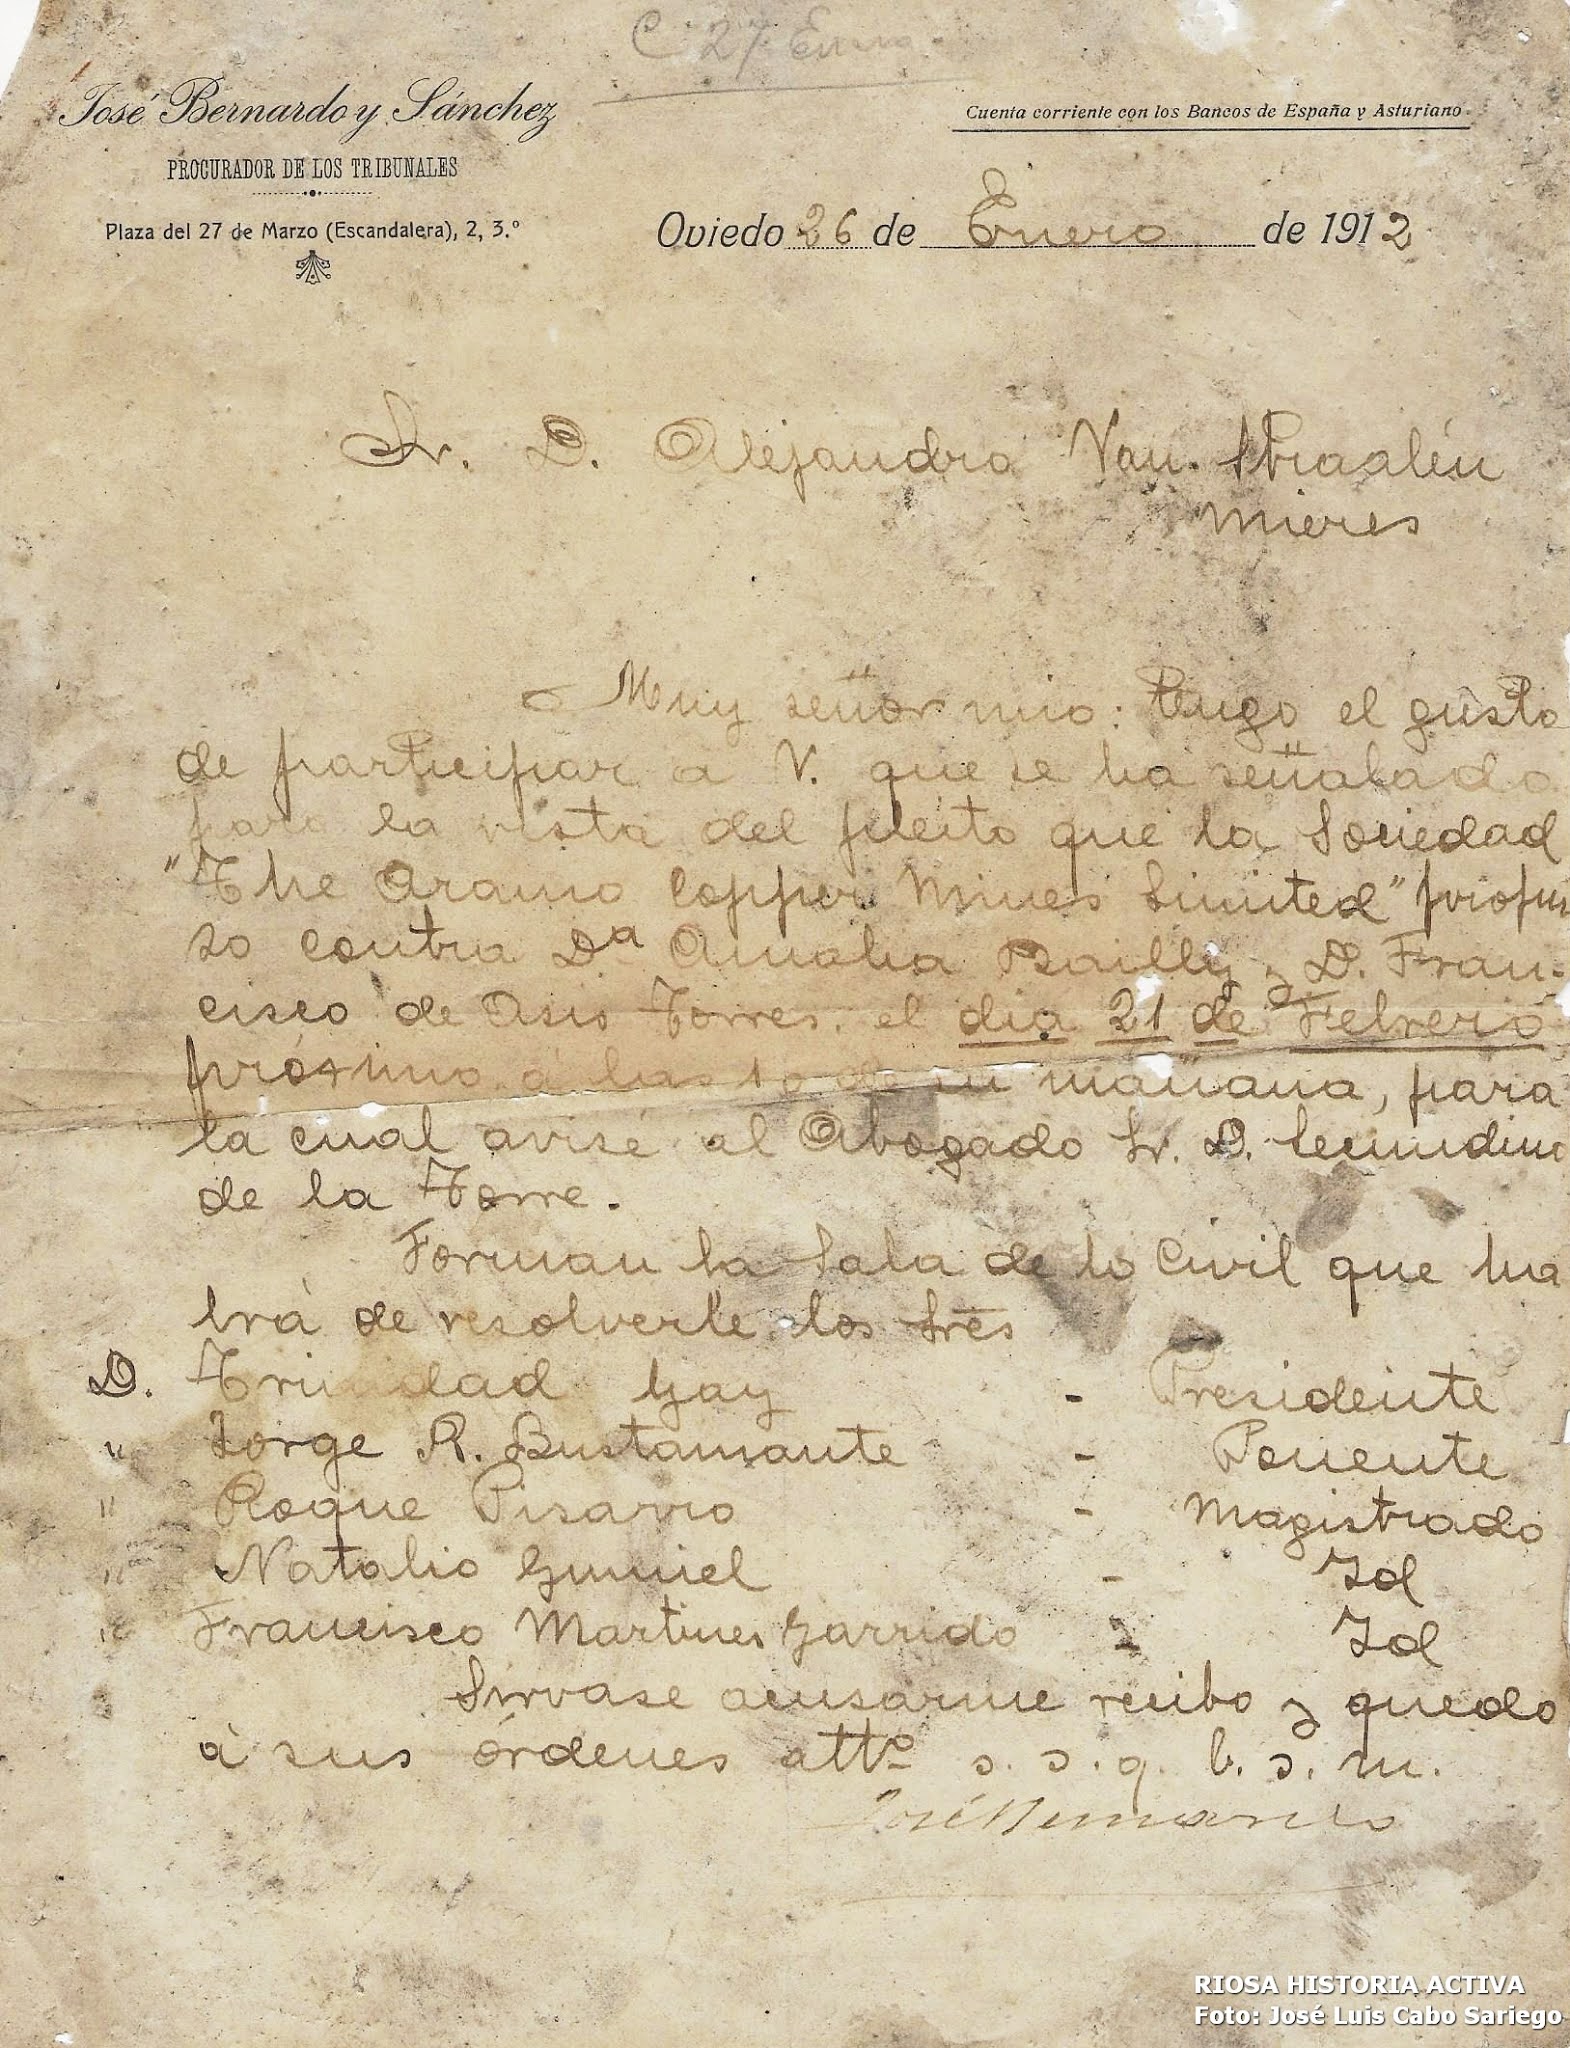 C 27 Enero.
José Bernardo y Sánchez
PROCURADOR DE LOS TRIBUNALES
Plaza del 27 de Marzo (Escandalera), 2, 3.º
Cuenta corriente con los Bancos de España y Asturiano
Oviedo 26 de Enero de 1912
Sr. D. Alejandro Van. Straalén
Mieres
Muy señor mio: Tengo el gusto
de participar a V. que se ha señalado
para la vista del pleito que la Sociedad
"The Aramo Copper Mines Limited" propu
so contra Dª Amalia Bailly y D. Fran-
cisco de Asis Torres. el dia 21 de Febrero
próximo a las 10 de su mañana, para
la cual avisé al Abogado Sr. D. Secundino
de la Torre.
Forman la Sala de lo Civil que ha
brá de resolverle los Sres
D. Trinidad Gay - Presidente
" Jorge R. Bustamante - Ponente
" Roque Pisarro - Magistrado
" Natalio Gumiel - Id
" Francisco Martines Garrido - Id
Sirvase acusarme recibo y quedo
à sus órdenes attº s. s. q. b. s. m.
José Bernardo
RIOSA HISTORIA ACTIVA
Foto: José Luis Cabo Sariego